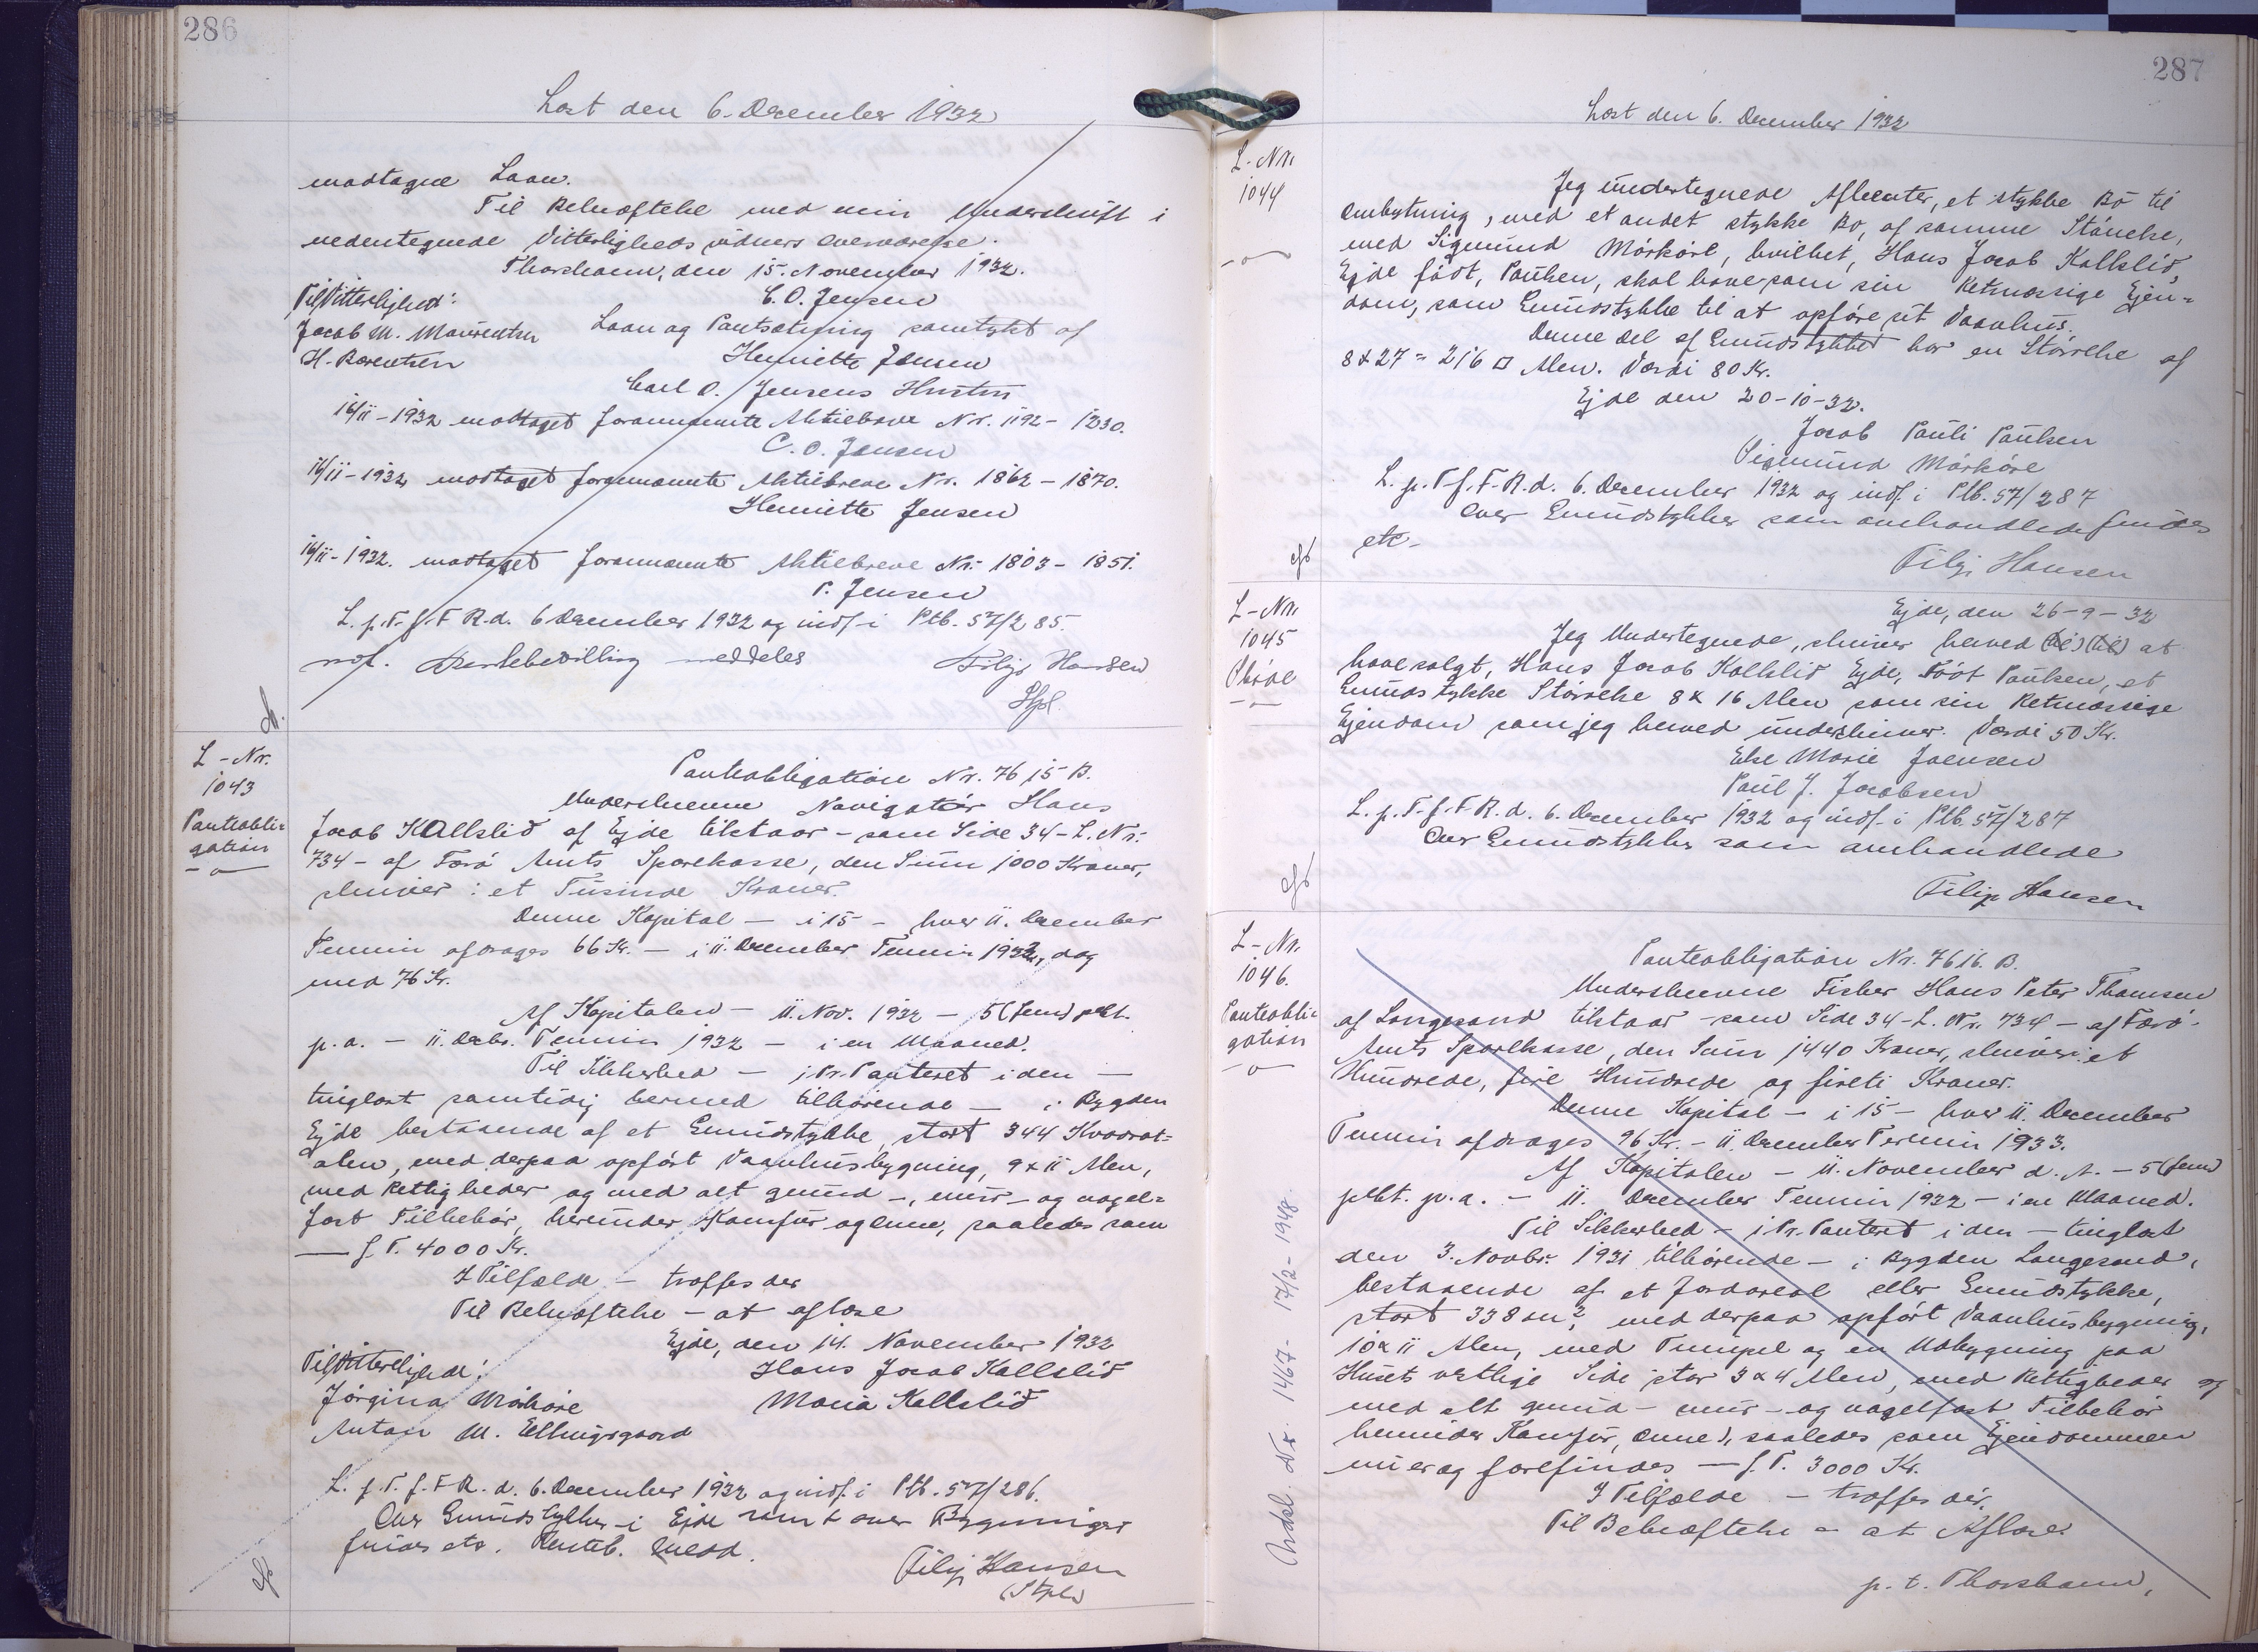 286
Læst den 6. December 1932
modtagne Laan.
Til Bekræftelse med min Underskrift i
nedentegnede Vitterligheds vidners overværelse.
Thorshavn, den 15. November 1932.
Til Vitterlighed: C. O. Jensen
Jacob M. Mourentsen Laan og Pantsætning samtykt af
H. Berentsen Henriette Jensen
Carl O. Jensens Hustru
16/11-1932 modtaget forannævnte Aktiebreve Nr. 1192 - 1230.
C. O. Jensen
16/11-1932 modtaget forannævnte Aktiebreve Nr. 1862 - 1870.
Henriette Jensen
16/11-1932. modtaget forannævnte Aktiebreve Nr. 1803 - 1851.
P. Jensen
L. p. T. f. F. R. d. 6 December 1932 og indf. i Ptb. 57/285.
Rentebevilling meddeles Filip Hansen
L-Nr.
1043
Panteobli=
gation
Panteobligation Nr. 7615 B.
Underskrevne Navigatør Hans
Jacob Kallslið af Ejde tilstaar - som Side 34 - L. Nr.
734 - af Færø Amts Sparekasse, den Sum 1000 Kroner,
skriver: et Tusinde Kroner.
Denne Kapital - i 15 - hver 11. December
Termin afdrages 66 Kr. - i 11. December Termin 1932, dog
med 76 Kr.
Af Kapitalen - 11. Nov. 1932 - 5 (fem) pCt.
p. a. - 11. Decbr. Termin 1932 - i en Maaned.
Til Sikkerhed - i Pr. Panteret i den -
tinglæst samtidig hermed tilhørende - i Bygden
Ejde bestaaende af et Grundstykke, stort 344 Kvadrat=
alen, med derpaa opført Vaanhusbygning, 9 x 11 Alen,
med Rettigheder og med alt grund-, mur- og nagel=
fast Tilbehør, herunder Komfur og Ovne, saaledes som
- f. T. 4000 Kr.
I Tilfælde - træffes der
Til Bekræftelse - at aflæse
Ejde, den 14. November 1932
Til Vitterlighed: Hans Jacob Kallslið
Jörgina Mørkøre Maria Kallslið
Anton M. Ellingsgaard
L. p. T. f. F. R. d. 6. December 1932 og indf. i Ptb. 57/286.
Over Grundstykker i Ejde samt over Bygninger
findes etc. Renteb. Medd.
Filip Hansen
287
Læst den 6. December 1932
L-Nr.
1044
Jeg undertegnede Afhenter, et stykke Bø til
Ombytning, med et andet stykke Bø, af samme Størrelse,
med Sigmund Mörköre, hvilket, Hans Jacob Kallslið,
Ejde født, Poulsen, skal have som sin Retmæssige Ejen=
dom, som Grundstykke til at opføre sit Vaanhus.
Denne del af Grundstykket har en Størrelse af
8 x 27 = 216 □ Alen. Værdi 80 Kr.
Ejde den 20-10-32.
Jacob Pauli Poulsen
Sigmund Mörköre
L. p. T. f. F. R. d. 6. December 1932 og indf. i Ptb. 57/287
Over Grundstykker som omhandlede findes
etc.
Filip Hansen
L-Nr.
1045
Skøde
Ejde, den 26-9-32
Jeg Undertegnede, skriver herved (til) (til) at
have solgt, Hans Jacob Kallslið Ejde, Født Poulsen, et
Grundstykke Størrelse 8 x 16 Alen som sin Retmæssige
Ejendom som jeg herved underskriver. Værdi 50 Kr.
Else Marie Joensen
Poul J. Jacobsen
L. p. T. f. F. R. d. 6. December 1932 og indf. i Ptb. 57/287
Over Grundstykker som omhandlede
Filip Hansen
L-Nr.
1046.
Panteobli=
gation
Panteobligation Nr. 7616. B.
Underskrevne Fisker Hans Peter Thomsen
af Langesand tilstaar - som Side 34 - L. Nr. 734 - af Færø
Amts Sparekasse, den Sum 1440 Kroner, skriver: et
Hundrede, fire Hundrede og fireti Kroner.
Denne Kapital - i 15 - hver 11. December
Termin afdrages 96 Kr. - 11. December Termin 1933.
Af Kapitalen - 11. November d. A. - 5 (fem)
pCt. p. a. - 11. December Termin 1932 - i en Maaned.
Til Sikkerhed - i Pr. Panteret i den - tinglæst
den 3. Novbr. 1931 tilhørende - i Bygden Langesand,
bestaaende af et Jordareal eller Grundstykke,
stort 338 m², med derpaa opført Vaanhusbygning,
10 x 11 Alen, med Tumpel og en Udbygning paa
Husets vestlige Side stor 3 x 4 Alen, med Rettigheder og
med alt grund- mur- og nagelfast Tilbehør
herunder Komfur, Ovne), saaledes som Ejendommen
nu er og forefindes - f. T. 3000 Kr.
I Tilfælde - træffes der,
Til Bekræftelse - at Aflæse
p. t. Thorshavn,
Udsl. Nr. 1467 - 17/2 - 1948.